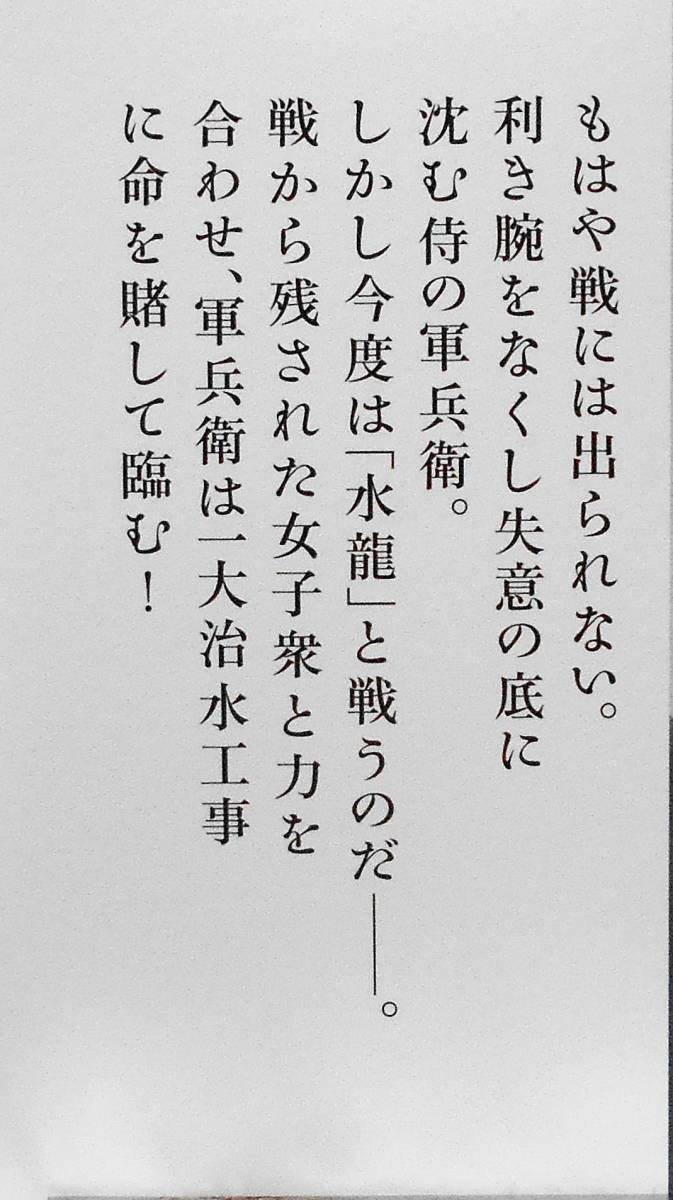 もはや戦には出られない。
利き腕をなくし失意の底に
沈む侍の軍兵衛。
しかし今度は「水龍」と戦うのだ――。
戦から残された女子衆と力を
合わせ、軍兵衛は一大治水工事
に命を賭して臨む！